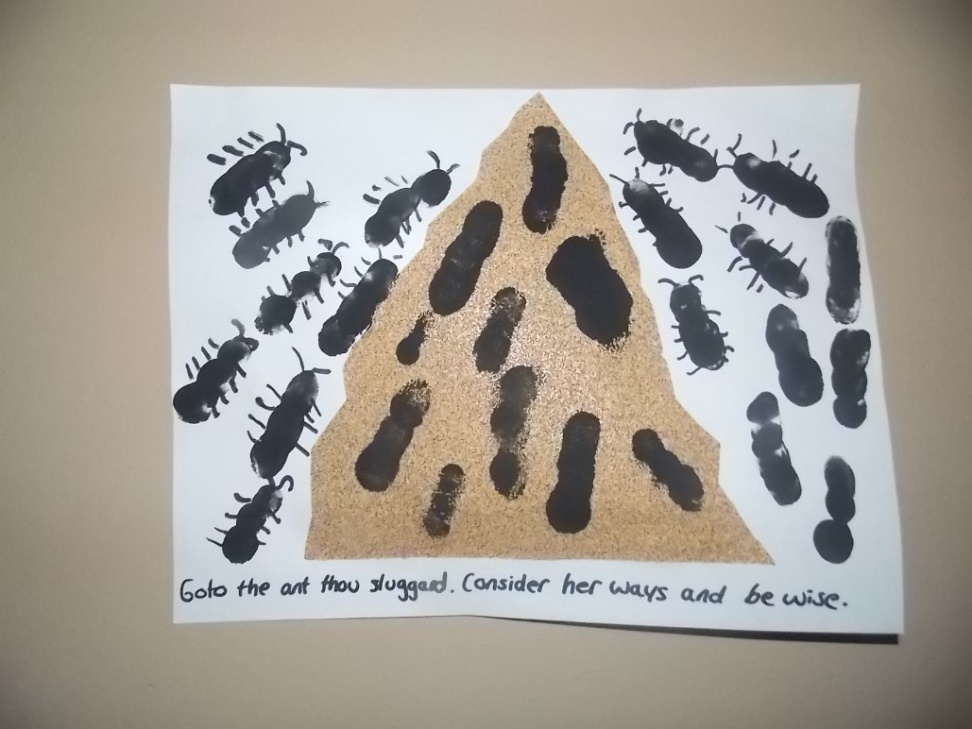 Goto the ant thou sluggard. Consider her ways and be wise.